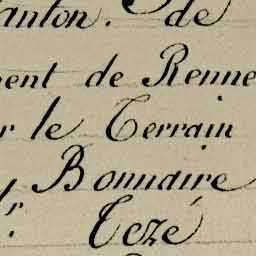 anton. de
ent de Renne
r le Terrain
Bonnaire
r. Tezé